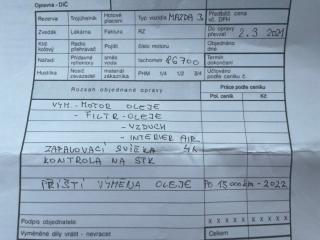 Opravna - DIČ
Rezerva Trojúhelník Hotově placení Typ vozidla MAZDA 3 Předběž. cena vč. DPH
Zvedák Lékárna Faktura RZ Do opravy převzal 2.3 2021
Klíč kolový Radio přehrávač Pojišť číslo motoru Objednáno dne
Nářadí Přídavné reflektory Ssebou tachometr 86700 Termín dokončení
Hustilka Nosič zavazadel materiál zákazníka PHM 1/4 1/2 3/4 Účtováno podle ceníku č.
Rozsah objednané opravy Práce podle ceníku
Pol. ceník Kč
VÝM-MOTOR OLEJE
- FILTR-OLEJE
- VZDUCH
- INTERIER AIR
ZAPALOVACÍ SVÍČKA 4x
KONTROLA NA STK
PŘÍŠTÍ VÝMĚNA OLEJE PO 15000km-2022
Podpis objednatele: X X X X X X X X
Vyměněné díly vrátit - nevracet Celkem